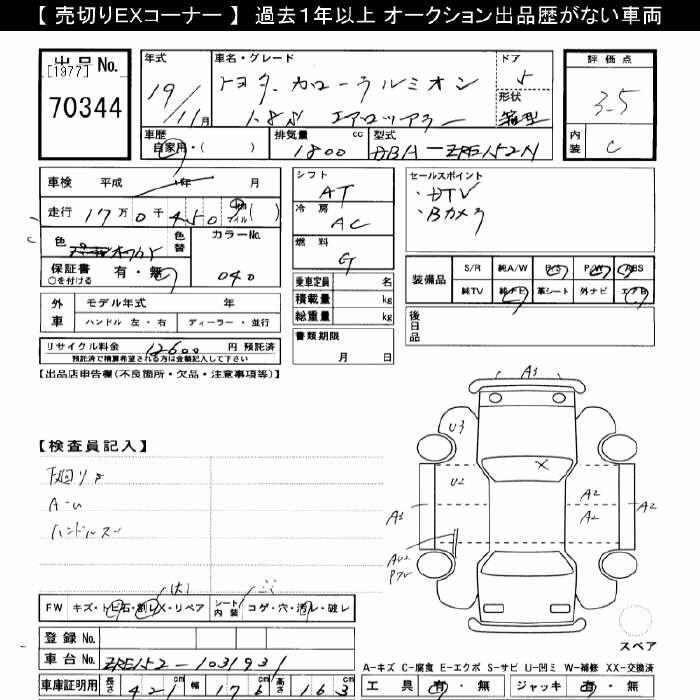 【 売切りEXコーナー 】 過去1年以上 オークション出品歴がない車両
出品No. [1977] 70344
年式 19/11月
車名・グレード トヨタ カローラルミオン 1.8S エアロツアラー
ドア 5
形状 箱型
評価点 3.5
内装 C
車歴 自家用・( )
排気量 1800 cc
型式 DBA-ZRE152N
車検 平成 年 月
走行 17万0千450 Km マイル ( )
色 オフホワイト
色替
カラーNo. 040
保証書 有・無
○を付ける
外車 モデル年式 年
ハンドル 左・右 ディーラー・並行
リサイクル料金 12600 円 預託済
預託済で精算希望される方は金額記入して下さい
シフト AT
冷房 AC
燃料 G
乗車定員 名
積載量 kg
総重量 kg
書類期限
月 日
セールスポイント
・DTV
・Bカメラ
装備品 S/R 純A/W P/S P/W ABS
純TV 純ナビ 革シート 外ナビ エアB
後日品
【出品店申告欄(不良箇所・欠品・注意事項等)】
【検査員記入】
下廻りサ
A-U
ハンドルスレ
A3
U3
U2
A2
A2
A3
A2
AU2
P7U
FW キズ・トビ石・割レX・リペア (大)
シート内装 コゲ・穴・汚レ・破レ
登録No.
車台No. ZRE152-1031931
車庫証明用 長さ 421 cm 幅 176 cm 高さ 163 cm
スペア
A-キズ C-腐食 E-エクボ S-サビ U-凹ミ W-補修 XX-交換済
工具 有・無 ジャッキ 有・無